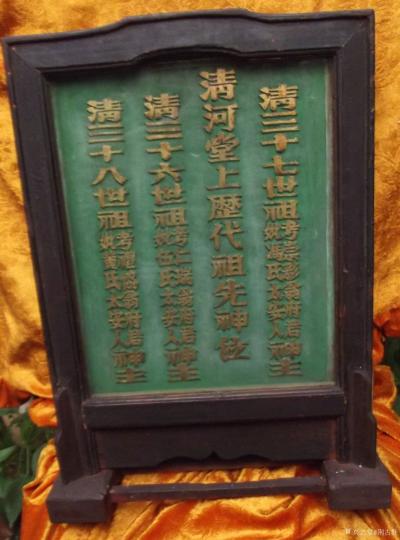 清三十七世祖考宗彭翁府君妣馮氏太安人神主
清河堂上歷代祖先神位
清三十六世祖考仁瑞翁府君妣伍氏太安人神主
清三十八世祖考禮盛翁府君妣黃氏太安人神主